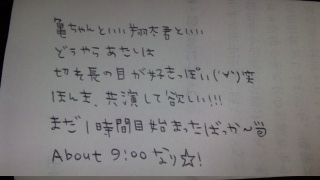 亀ちゃんといい翔太君といい
どうやらあたしは
切れ長の目が好きっぽい(´∀`)笑
ほんま、共演して欲しい!!!
まだ1時間目始まったばっか〜
About 9:00 なり☆!